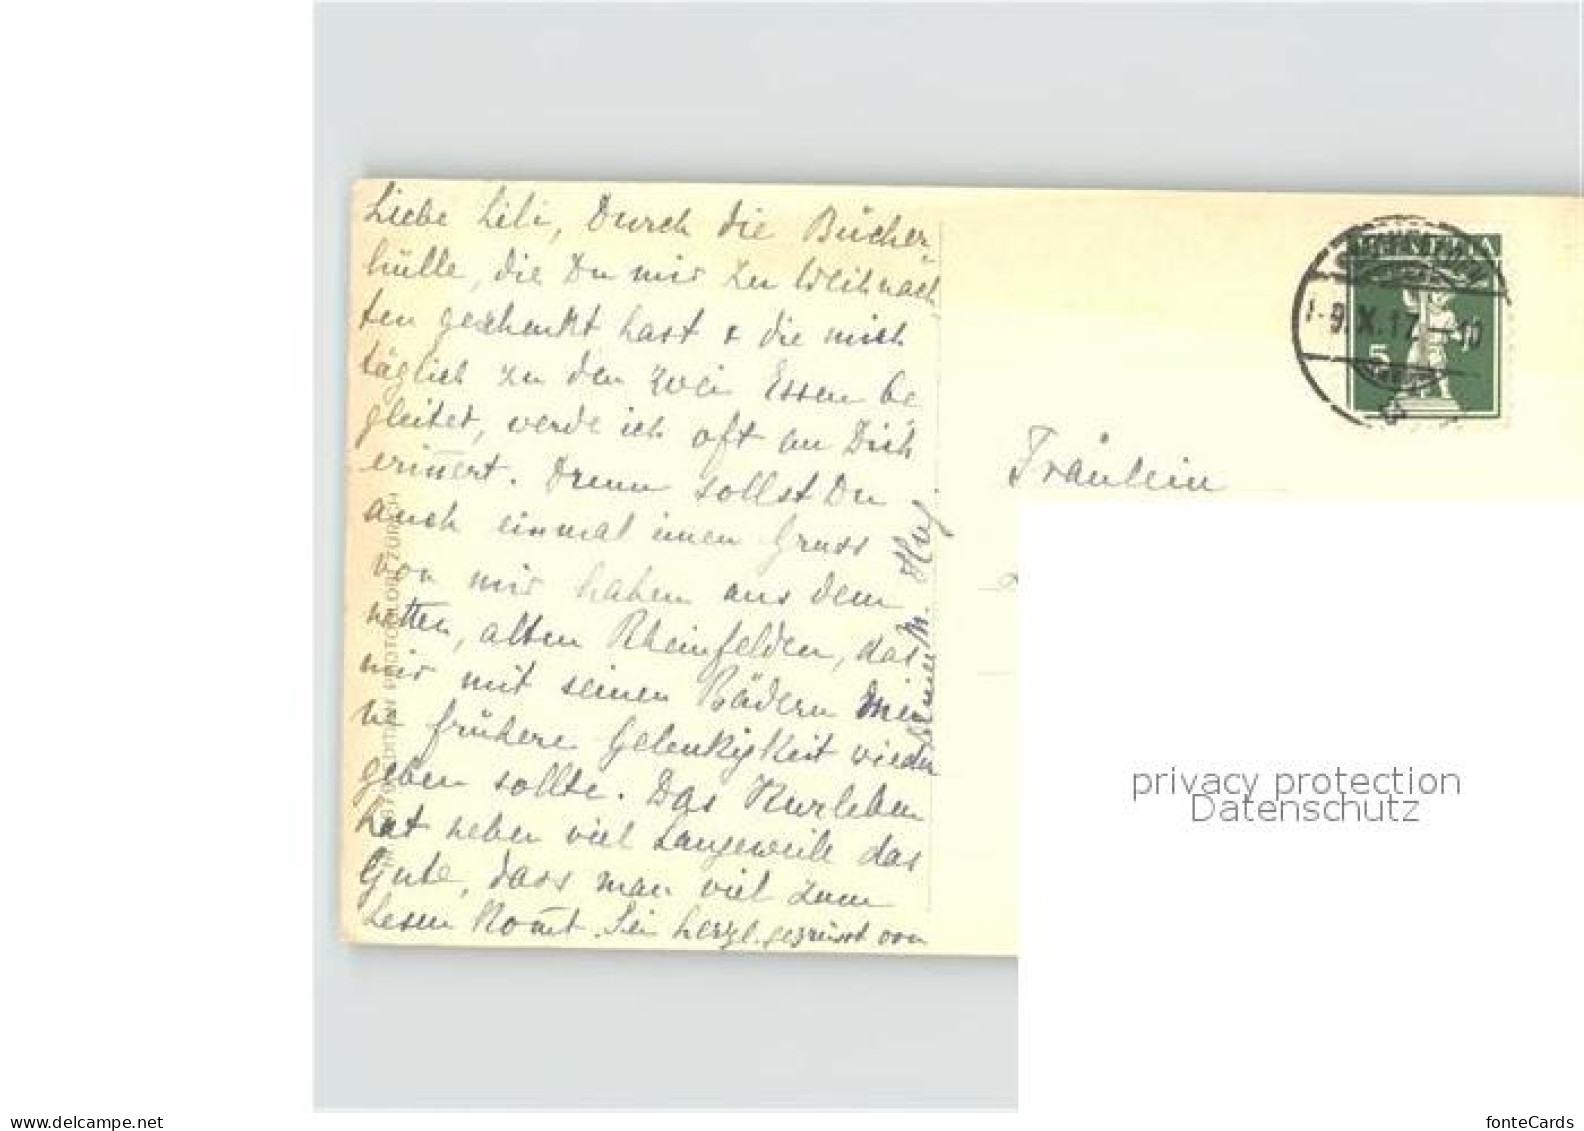 Liebe Lili, Durch die Bücher-
hülle, die Du mir zu Weihnach
ten geschenkt hast & die mich
täglich zu den zwei Essen be
gleitet, werde ich oft an Dich
erinn̄ert. Drum sollst Du
auch einmal einen Gruss
von mir haben aus dem
netten, alten Rheinfelden, das
mir mit seinen Bädern mei
ne frühere Gelenkigkeit wieder
geben sollte. Das Kurleben
hat neben viel Langeweile das
Gute, dass man viel zum
Lesen kom̄t. Sei herzl. gegrüsst von
PHOTOGLOB ZÜRICH
HELVETIA
9.X.17.-10
5
Fräulein
privacy protection
Datenschutz
www.delcampe.net
fonteCards